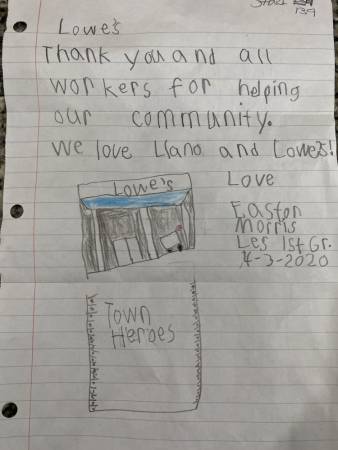 Lowe's
Thank you and all
workers for helping
our community.
We love Llano and Lowe's!
Lowe's
Love
Easton
Morris
Les 1st Gr.
4-3-2020
Town
Heroes